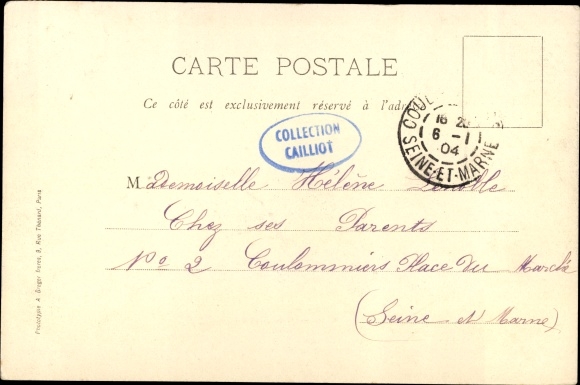 CARTE POSTALE
Ce côté est exclusivement réservé à l'adr
COLLECTION
CAILLIOT
COUL
16 
6 - 1
04
SEINE-ET-MARNE
Mademoiselle Hélène
Chez ses Parents
No 2 Coulommiers Place du Marché
(Seine et Marne)
Prototypie A. Breger frères, 9, Rue Thénard, Paris